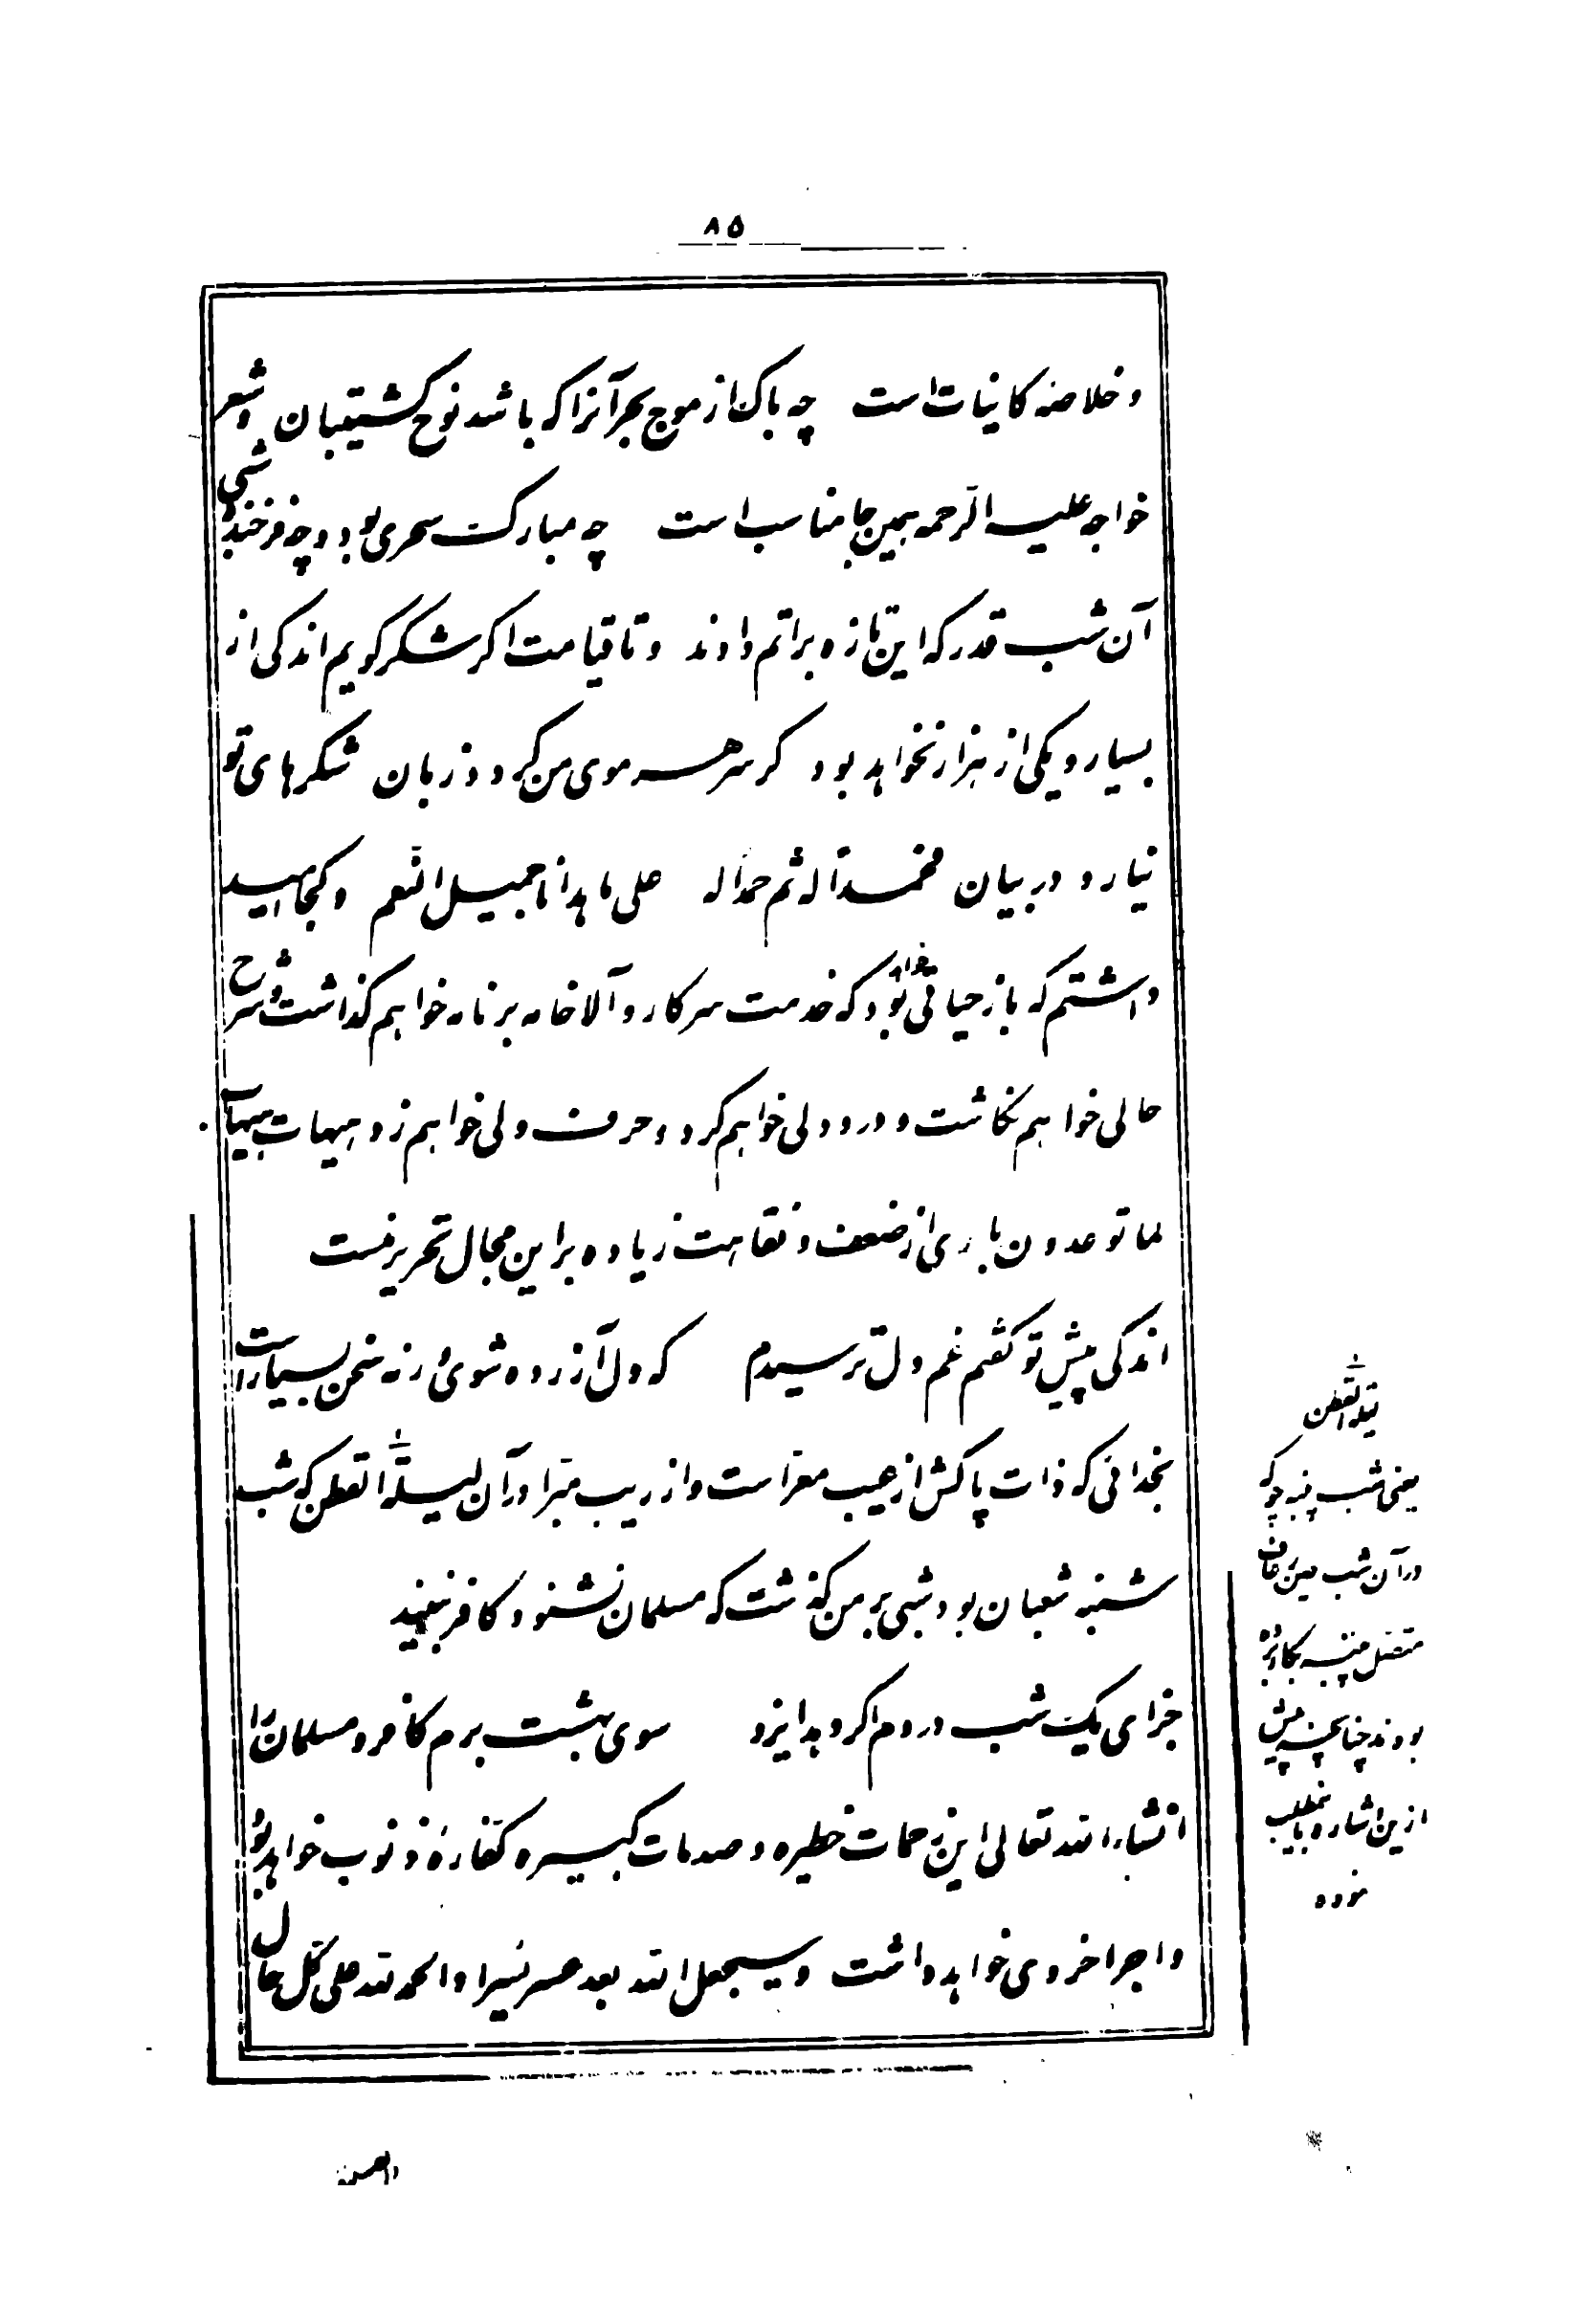 ۸۵
و خلاصه کاینات است چه باک از موج بحر آنرا که باشد نوح کشتیبان و شعر
خواجه علیه الرحمه بهمین جا مناسب است چه مبارک سحری بود و چه فرخنده شبی
آن شب قدر که این تازه براتم دادند و تا قیامت اکر شکر کویم اندکی از
بسیار و یکی از هزار نخواهد بود کر سر هر موی من کردد زبان شکرهای تو
نیارد در بیان فحمدا له ثم حمدا له علی ما هدانا جمیل النعم و کجا امید
داشتم که باز حیاتی خواهد بود که خدمت سرکار والا خامه بر نامه خواهم کذاشت و شرح
حالی خواهم نکاشت و درود دلی خواهم کرد و حرف دلی خواهم زد هیهات هیهات
لما توعدون باری از ضعف و نقاهت زیاده بر این مجال تحریر نیست
اندکی پیش تو کفتم غم دل ترسیدم که دل آزرده شوی ورنه سخن بسیار است
بخدائی که ذات پاکش از عیب معراست و از ریب مبرا در آن لیلة القطن که شب
شنبه شعبان بود شبی بر من کذشت که مسلمان نشنود کافر نبیند
جزای یک شب دردم اکر دهد ایزد سوی بهشت برم کافر و مسلمان را
انشاء الله تعالی این زحمات خطیره و صدمات کبیره کفاره ذنوب خواهد بود
و اجر اخروی خواهد داشت و سیجعل الله بعد عسر یسرا و الحمد لله علی کل حال
لیلة القطن
یعنی شب پنبه چونکه
در آن شب معین خان
متصل پنبه بکار برده
بودند چنانچه پیش
ازین اشاره باین مطلب
نموده